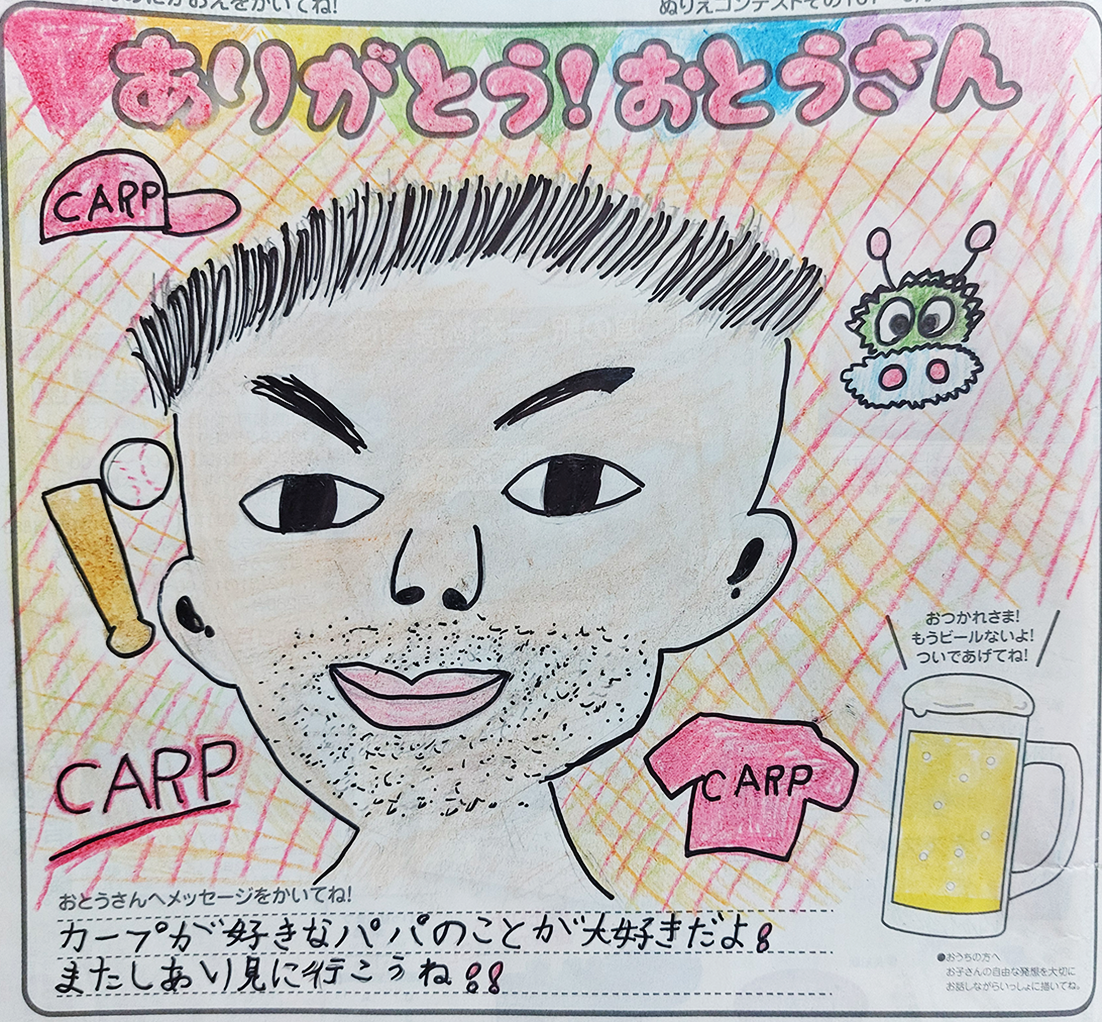 かおえをかいてね!
ぬりえコンテストその
ありがとう!おとうさん
CARP
おつかれさま!
もうビールないよ!
ついであげてね!
CARP
CARP
おとうさんへメッセージをかいてね!
カープが好きなパパのことが大好きだよ!
またしあい見に行こうね!!
●おうちの方へ
お子さんの自由な発想を大切に
お話しながらいっしょに描いてね。